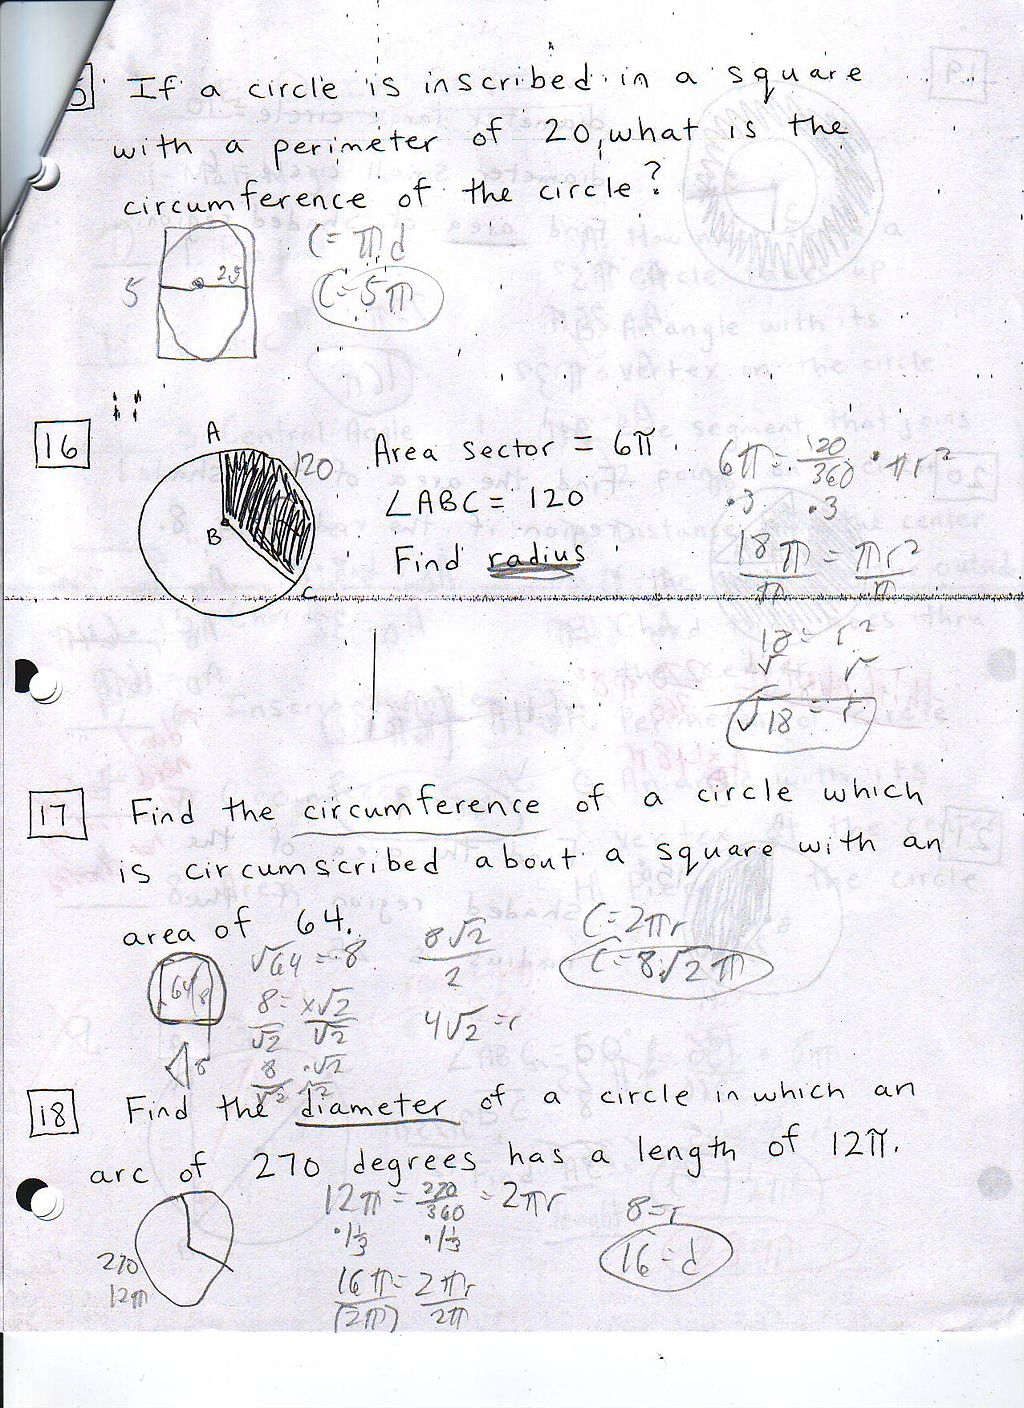 If a circle is inscribed in a square
with a perimeter of 20, what is the
circumference of the circle?
5
2.5
C= πd
C=5π
16
A
B
C
120
Area sector = 6π
∠ABC = 120
Find radius
6π = 120/360 · πr²
·3 ·3
18π/π = πr²/π
18 = r²
√ √
√18 = r
17
Find the circumference of a circle which
is circumscribed about a square with an
area of 64.
64 8
√64 = 8
8/√2 = x√2/√2
8/√2 · √2/√2
8√2/2
4√2 = r
C=2πr
C=8√2π
18
Find the diameter of a circle in which an
arc of 270 degrees has a length of 12π.
270
12π
12π = 270/360 = 2πr
·1⅓ ·1⅓
16π/(2π) = 2πr/2π
8=r
16=d